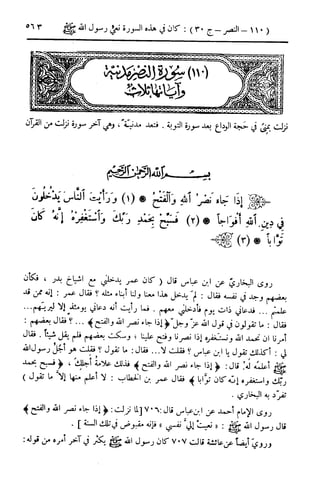 (١١٠ – النصر – ج ٣٠) : كان في هذه السورة نعي رسول الله ﷺ ٥٦٣
(١١٠) سورة النصر مدنية
وآياتها ثلاث
نزلت بمنى في حجة الوداع بعد سورة التوبة . فتعد مدنية ، وهي آخر سورة نزلت من القرآن
بسم الله الرحمن الرحيم
إذا جاء نصر الله والفتح * (١) ورأيت الناس يدخلون
في دين الله أفواجاً * (٢) فسبح بحمد ربك واستغفره إنه كان
تواباً * (٣)
روى البخاري عن ابن عباس قال ( كان عمر يدخلني مع اشياخ بدر ، فكأن
بعضهم وجد في نفسه فقال : لم يدخل هذا معنا ولنا أبناء مثله ؟ فقال عمر : إنه ممن قد
علمتم ... فدعاني ذات يوم فأدخلني معهم . فما رأيت أنه دعاني يومئذ إلا ليريهم...
فقال : ما تقولون في قول الله عز وجل ﴿ إذا جاء نصر الله والفتح ﴾ ... ؟ فقال بعضهم :
أمرنا ان نحمد الله ونستغفره إذا نصرنا وفتح علينا ، وسكت بعضهم فلم يقل شيئاً . فقال
لي : أكذلك تقول يا ابن عباس ؟ فقلت لا... فقال: ما تقول ؟ فقلت هو أجل رسول الله
ﷺ أعلمه له، قال: ﴿ إذا جاء نصر الله والفتح ﴾ فذلك علامة أجلك ، ﴿ فسبح بحمد
ربك واستغفره إنه كان تواباً ﴾ فقال عمر بن الخطاب : لا أعلم منها إلا ما تقول )
تفرد به البخاري .
روى الإمام أحمد عن ابن عباس قال: ٧٠٦ [ لما نزلت: ﴿ إذا جاء نصر الله والفتح ﴾
قال رسول الله ﷺ : « نعيت إلي نفسي » فإنه مقبوض في تلك السنة ] .
وروي أيضاً عن عائشة قالت ٧٠٧ كان رسول الله ﷺ يكثر في آخر أمره من قوله: